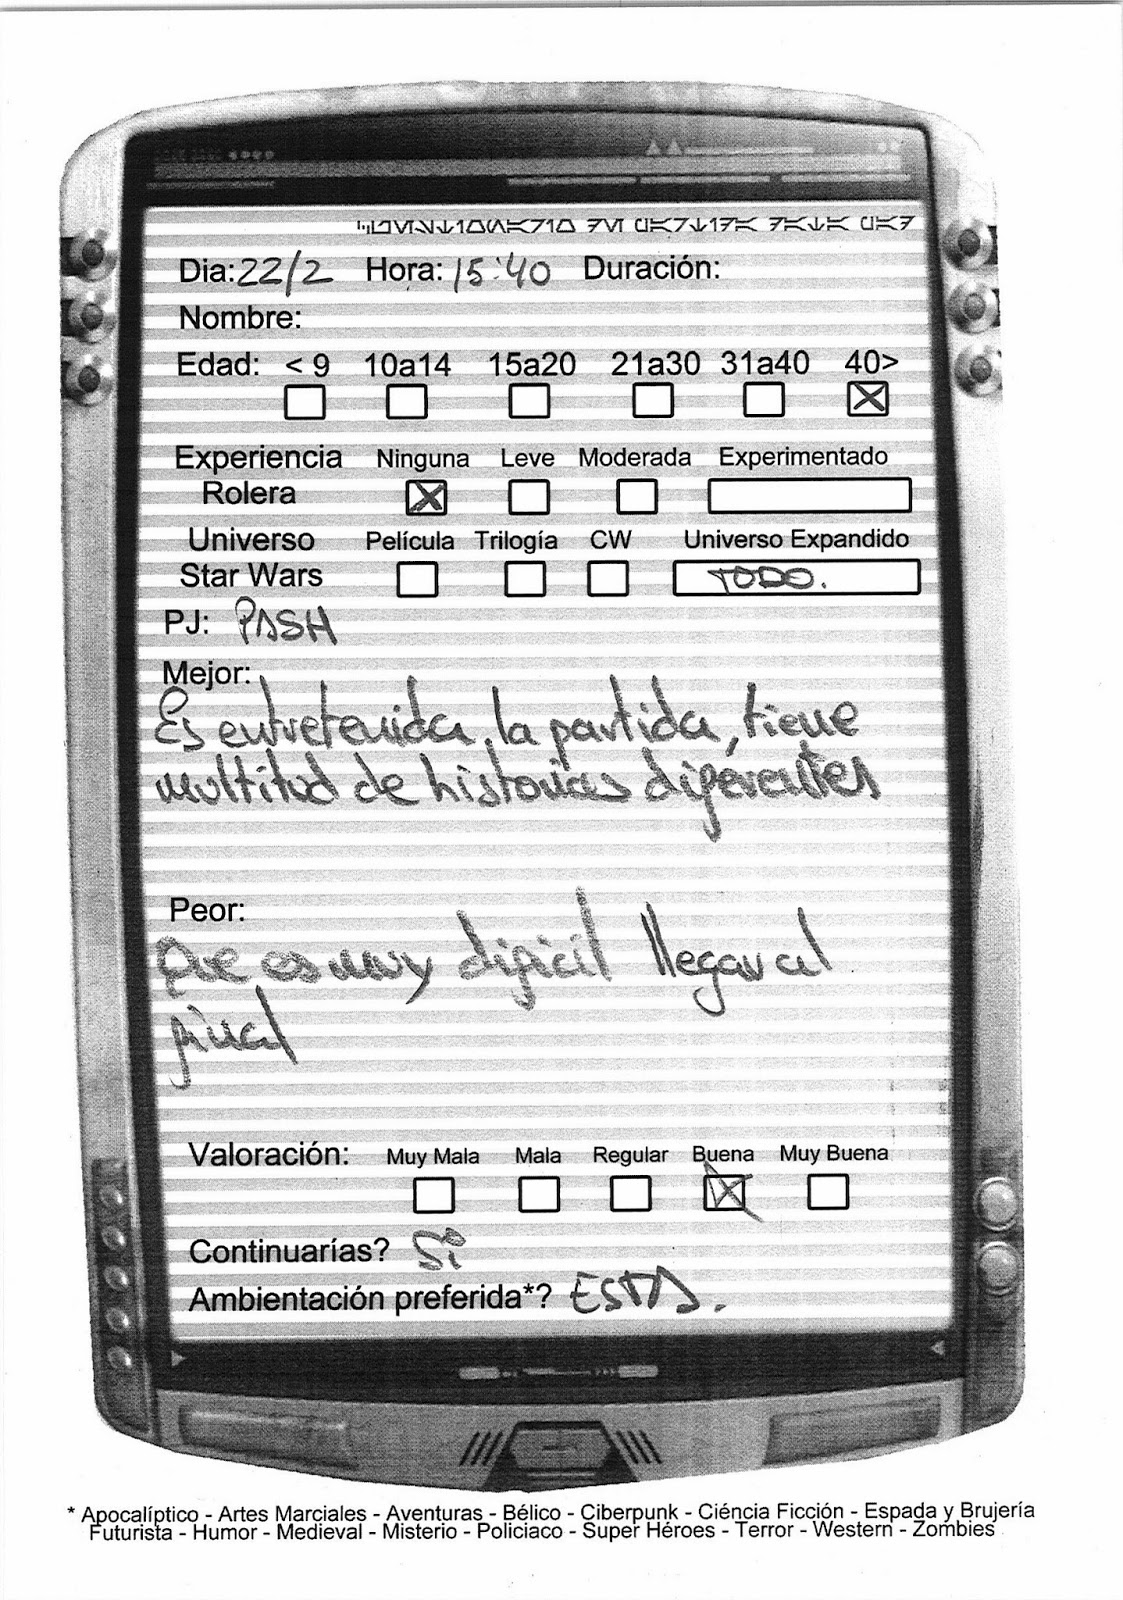 Dia: 22/2 Hora: 15:40 Duración:
Nombre:
Edad: < 9 10a14 15a20 21a30 31a40 40>
Experiencia Ninguna Leve Moderada Experimentado
Rolera
Universo Película Trilogía CW Universo Expandido
Star Wars TODO.
PJ: PASH
Mejor:
Es entretenida, la partida, tiene
multitud de historias diferentes
Peor:
Que es muy dificil llegar al
final
Valoración: Muy Mala Mala Regular Buena Muy Buena
Continuarías? Si
Ambientación preferida*? ESTA.
* Apocalíptico - Artes Marciales - Aventuras - Bélico - Ciberpunk - Ciéncia Ficción - Espada y Brujería
Futurista - Humor - Medieval - Misterio - Policiaco - Super Héroes - Terror - Western - Zombies